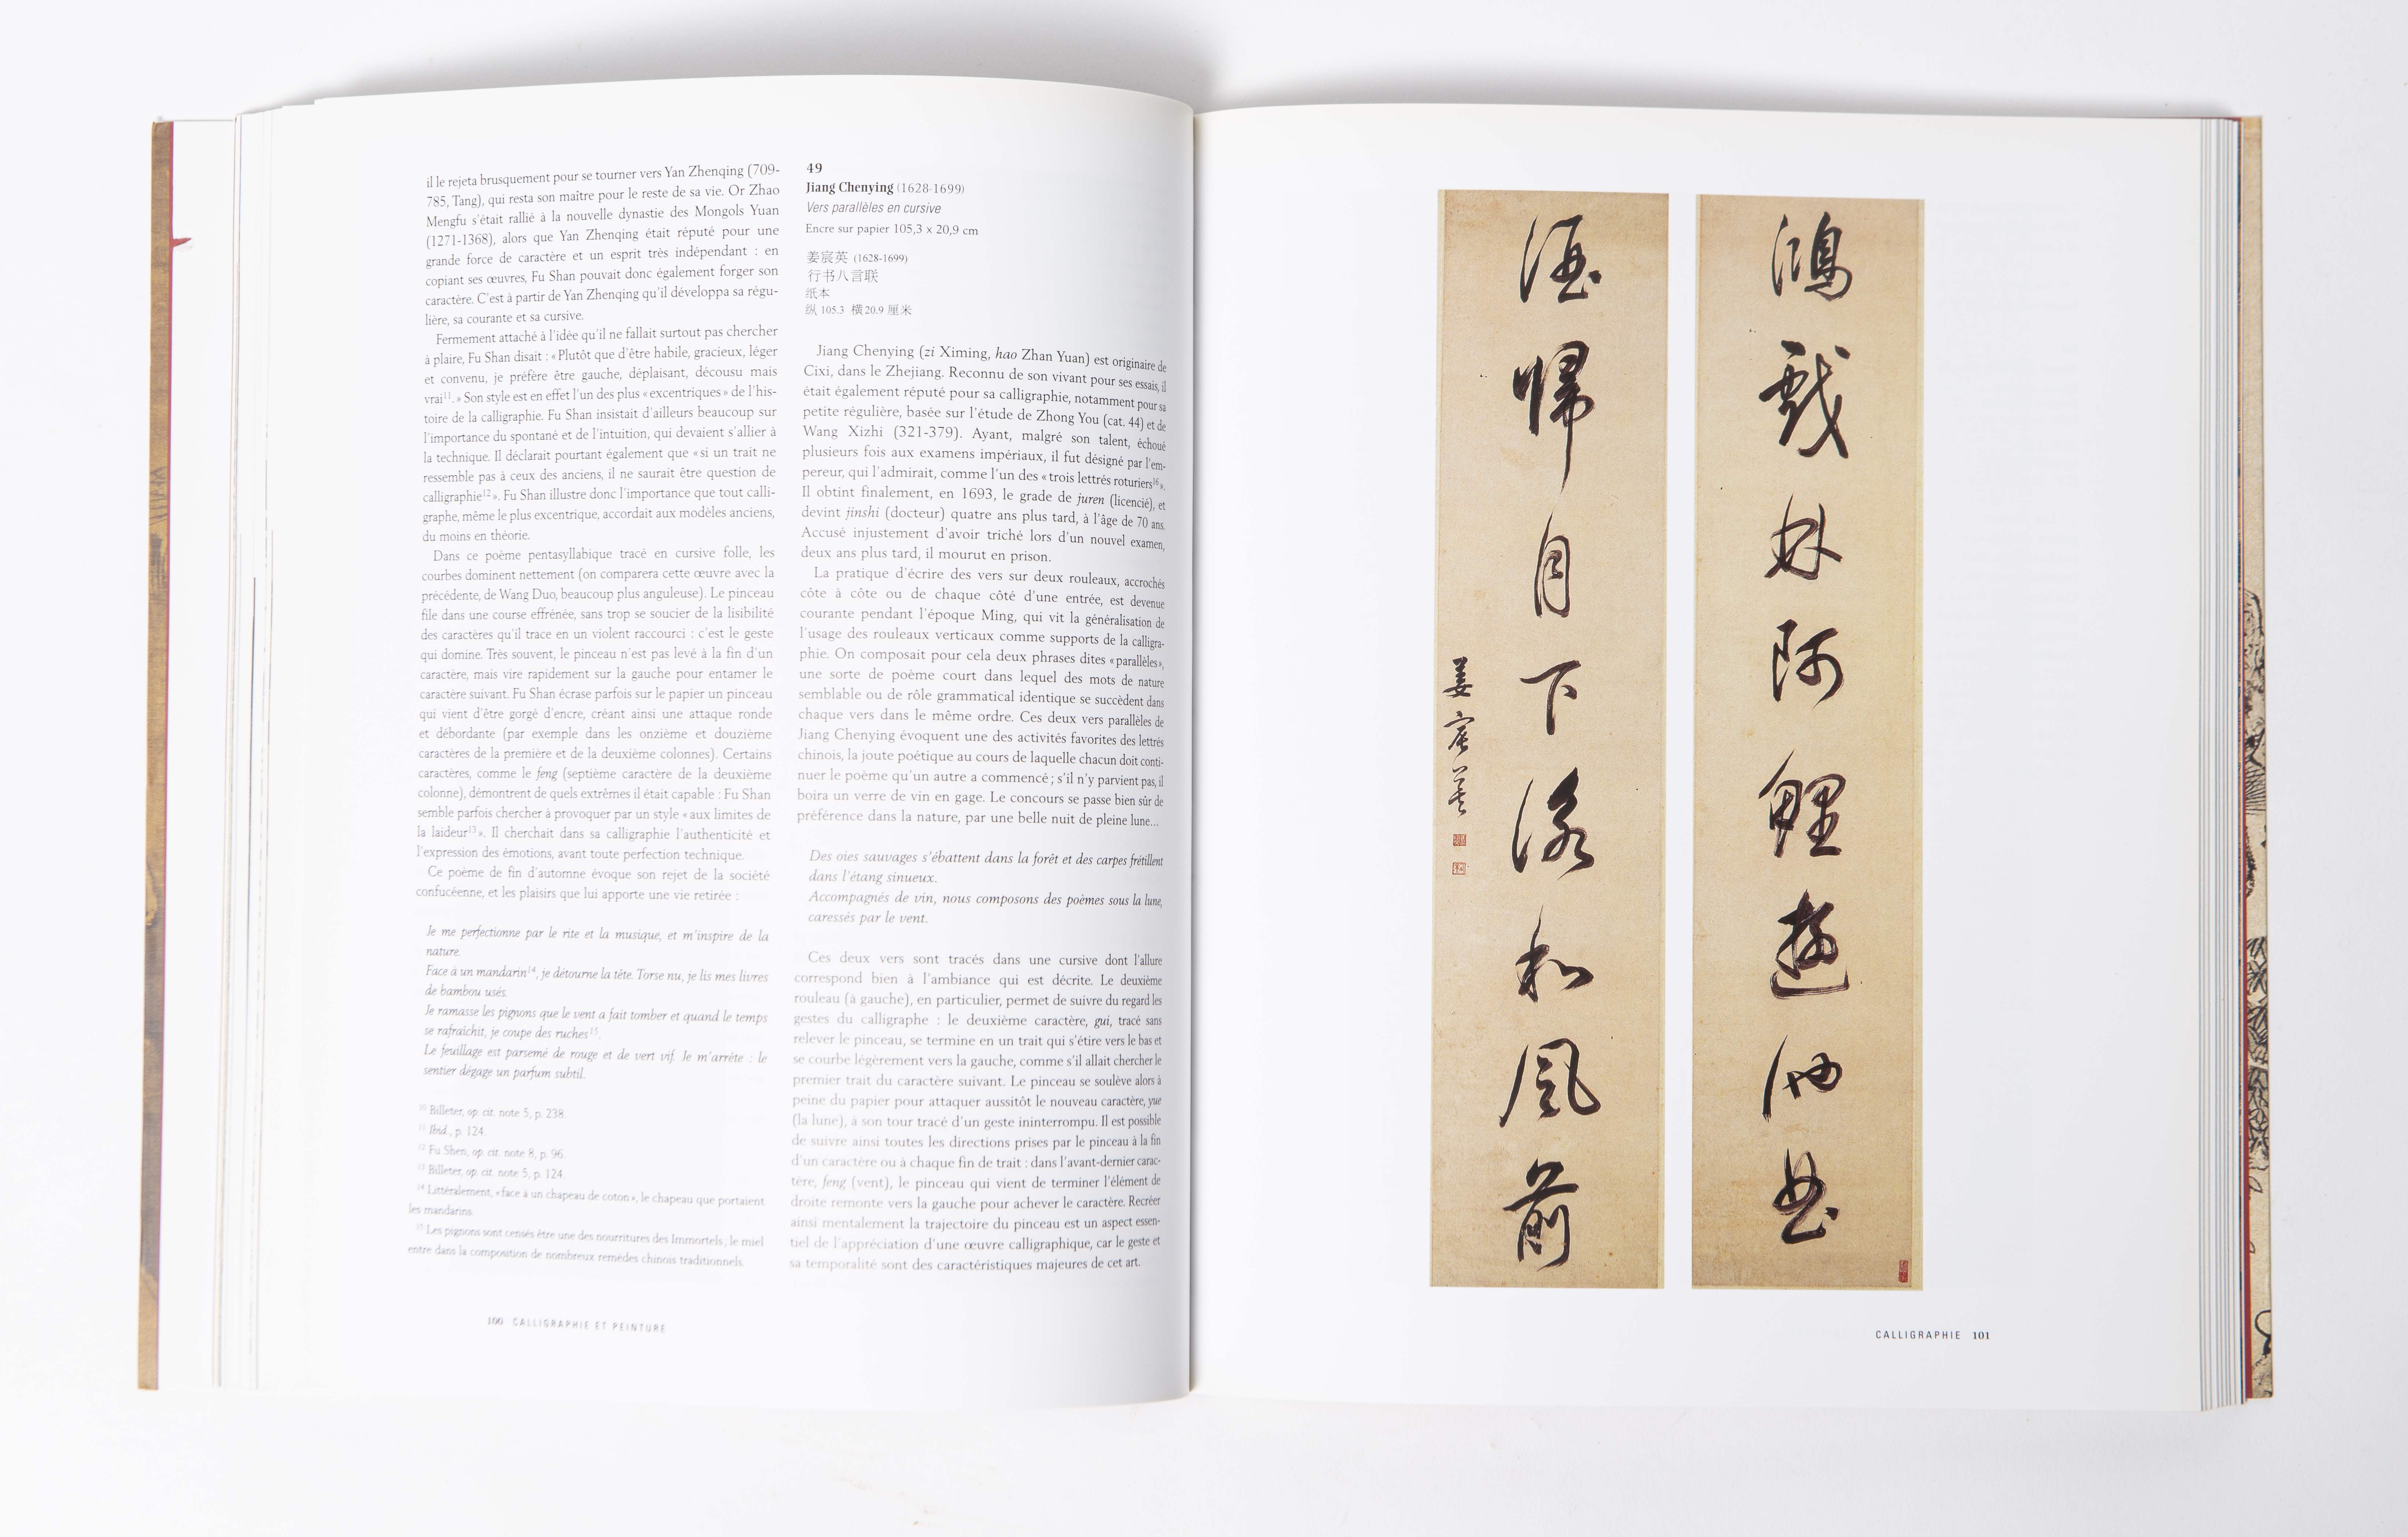 il le rejeta brusquement pour se tourner vers Yan Zhenqing (709-
785, Tang), qui resta son maître pour le reste de sa vie. Or Zhao
Mengfu s'était rallié à la nouvelle dynastie des Mongols Yuan
(1271-1368), alors que Yan Zhenqing était réputé pour une
grande force de caractère et un esprit très indépendant : en
copiant ses œuvres, Fu Shan pouvait donc également forger son
caractère. C'est à partir de Yan Zhenqing qu'il développa sa régu-
lière, sa courante et sa cursive.
Fermement attaché à l'idée qu'il ne fallait surtout pas chercher
à plaire, Fu Shan disait : « Plutôt que d'être habile, gracieux, léger
et convenu, je préfère être gauche, déplaisant, décousu mais
vrai¹¹. » Son style est en effet l'un des plus « excentriques » de l'his-
toire de la calligraphie. Fu Shan insistait d'ailleurs beaucoup sur
l'importance du spontané et de l'intuition, qui devaient s'allier à
la technique. Il déclarait pourtant également que « si un trait ne
ressemble pas à ceux des anciens, il ne saurait être question de
calligraphie¹² ». Fu Shan illustre donc l'importance que tout calli-
graphe, même le plus excentrique, accordait aux modèles anciens,
du moins en théorie.
Dans ce poème pentasyllabique tracé en cursive folle, les
courbes dominent nettement (on comparera cette œuvre avec la
précédente, de Wang Duo, beaucoup plus anguleuse). Le pinceau
file dans une course effrénée, sans trop se soucier de la lisibilité
des caractères qu'il trace en un violent raccourci : c'est le geste
qui domine. Très souvent, le pinceau n'est pas levé à la fin d'un
caractère, mais vire rapidement sur la gauche pour entamer le
caractère suivant. Fu Shan écrase parfois sur le papier un pinceau
qui vient d'être gorgé d'encre, créant ainsi une attaque ronde
et débordante (par exemple dans les onzième et douzième
caractères de la première et de la deuxième colonnes). Certains
caractères, comme le feng (septième caractère de la deuxième
colonne), démontrent de quels extrêmes il était capable : Fu Shan
semble parfois chercher à provoquer par un style « aux limites de
la laideur¹³ ». Il cherchait dans sa calligraphie l'authenticité et
l'expression des émotions, avant toute perfection technique.
Ce poème de fin d'automne évoque son rejet de la société
confucéenne, et les plaisirs que lui apporte une vie retirée :
Je me perfectionne par le rite et la musique, et m'inspire de la
nature.
Face à un mandarin¹⁴, je détourne la tête. Torse nu, je lis mes livres
de bambou usés.
Je ramasse les pignons que le vent a fait tomber et quand le temps
se rafraîchit, je coupe des ruches¹⁵.
Le feuillage est parsemé de rouge et de vert vif. Je m'arrête : le
sentier dégage un parfum subtil.
¹⁰ Billeter, op. cit. note 5, p. 238.
¹¹ Ibid., p. 124.
¹² Fu Shen, op. cit. note 8, p. 96.
¹³ Billeter, op. cit. note 5, p. 124.
¹⁴ Littéralement, « face à un chapeau de coton », le chapeau que portaient
les mandarins.
¹⁵ Les pignons sont censés être une des nourritures des Immortels ; le miel
entre dans la composition de nombreux remèdes chinois traditionnels.
100 CALLIGRAPHIE ET PEINTURE
49
Jiang Chenying (1628-1699)
Vers parallèles en cursive
Encre sur papier 105,3 x 20,9 cm
姜宸英 (1628-1699)
行书八言联
纸本
纵 105.3 横 20.9 厘米
Jiang Chenying (zi Ximing, hao Zhan Yuan) est originaire de
Cixi, dans le Zhejiang. Reconnu de son vivant pour ses essais, il
était également réputé pour sa calligraphie, notamment pour sa
petite régulière, basée sur l'étude de Zhong You (cat. 44) et de
Wang Xizhi (321-379). Ayant, malgré son talent, échoué
plusieurs fois aux examens impériaux, il fut désigné par l'em-
pereur, qui l'admirait, comme l'un des « trois lettrés roturiers¹⁶ ».
Il obtint finalement, en 1693, le grade de juren (licencié), et
devint jinshi (docteur) quatre ans plus tard, à l'âge de 70 ans.
Accusé injustement d'avoir triché lors d'un nouvel examen,
deux ans plus tard, il mourut en prison.
La pratique d'écrire des vers sur deux rouleaux, accrochés
côte à côte ou de chaque côté d'une entrée, est devenue
courante pendant l'époque Ming, qui vit la généralisation de
l'usage des rouleaux verticaux comme supports de la calligra-
phie. On composait pour cela deux phrases dites « parallèles »,
une sorte de poème court dans lequel des mots de nature
semblable ou de rôle grammatical identique se succèdent dans
chaque vers dans le même ordre. Ces deux vers parallèles de
Jiang Chenying évoquent une des activités favorites des lettrés
chinois, la joute poétique au cours de laquelle chacun doit conti-
nuer le poème qu'un autre a commencé ; s'il n'y parvient pas, il
boira un verre de vin en gage. Le concours se passe bien sûr de
préférence dans la nature, par une belle nuit de pleine lune...
Des oies sauvages s'ébattent dans la forêt et des carpes frétillent
dans l'étang sinueux.
Accompagnés de vin, nous composons des poèmes sous la lune,
caressés par le vent.
Ces deux vers sont tracés dans une cursive dont l'allure
correspond bien à l'ambiance qui est décrite. Le deuxième
rouleau (à gauche), en particulier, permet de suivre du regard les
gestes du calligraphe : le deuxième caractère, gui, tracé sans
relever le pinceau, se termine en un trait qui s'étire vers le bas et
se courbe légèrement vers la gauche, comme s'il allait chercher le
premier trait du caractère suivant. Le pinceau se soulève alors à
peine du papier pour attaquer aussitôt le nouveau caractère, yue
(la lune), à son tour tracé d'un geste ininterrompu. Il est possible
de suivre ainsi toutes les directions prises par le pinceau à la fin
d'un caractère ou à chaque fin de trait : dans l'avant-dernier carac-
tère, feng (vent), le pinceau qui vient de terminer l'élément de
droite remonte vers la gauche pour achever le caractère. Recréer
ainsi mentalement la trajectoire du pinceau est un aspect essen-
tiel de l'appréciation d'une œuvre calligraphique, car le geste et
sa temporalité sont des caractéristiques majeures de cet art.
鴻戲林阿鯉遊池曲
酒歸月下詠和風前
姜宸英
CALLIGRAPHIE 101